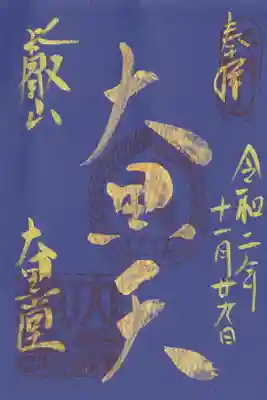 奉拝
令和二年
十一月廿九日
大黒天
比叡山
大黒堂